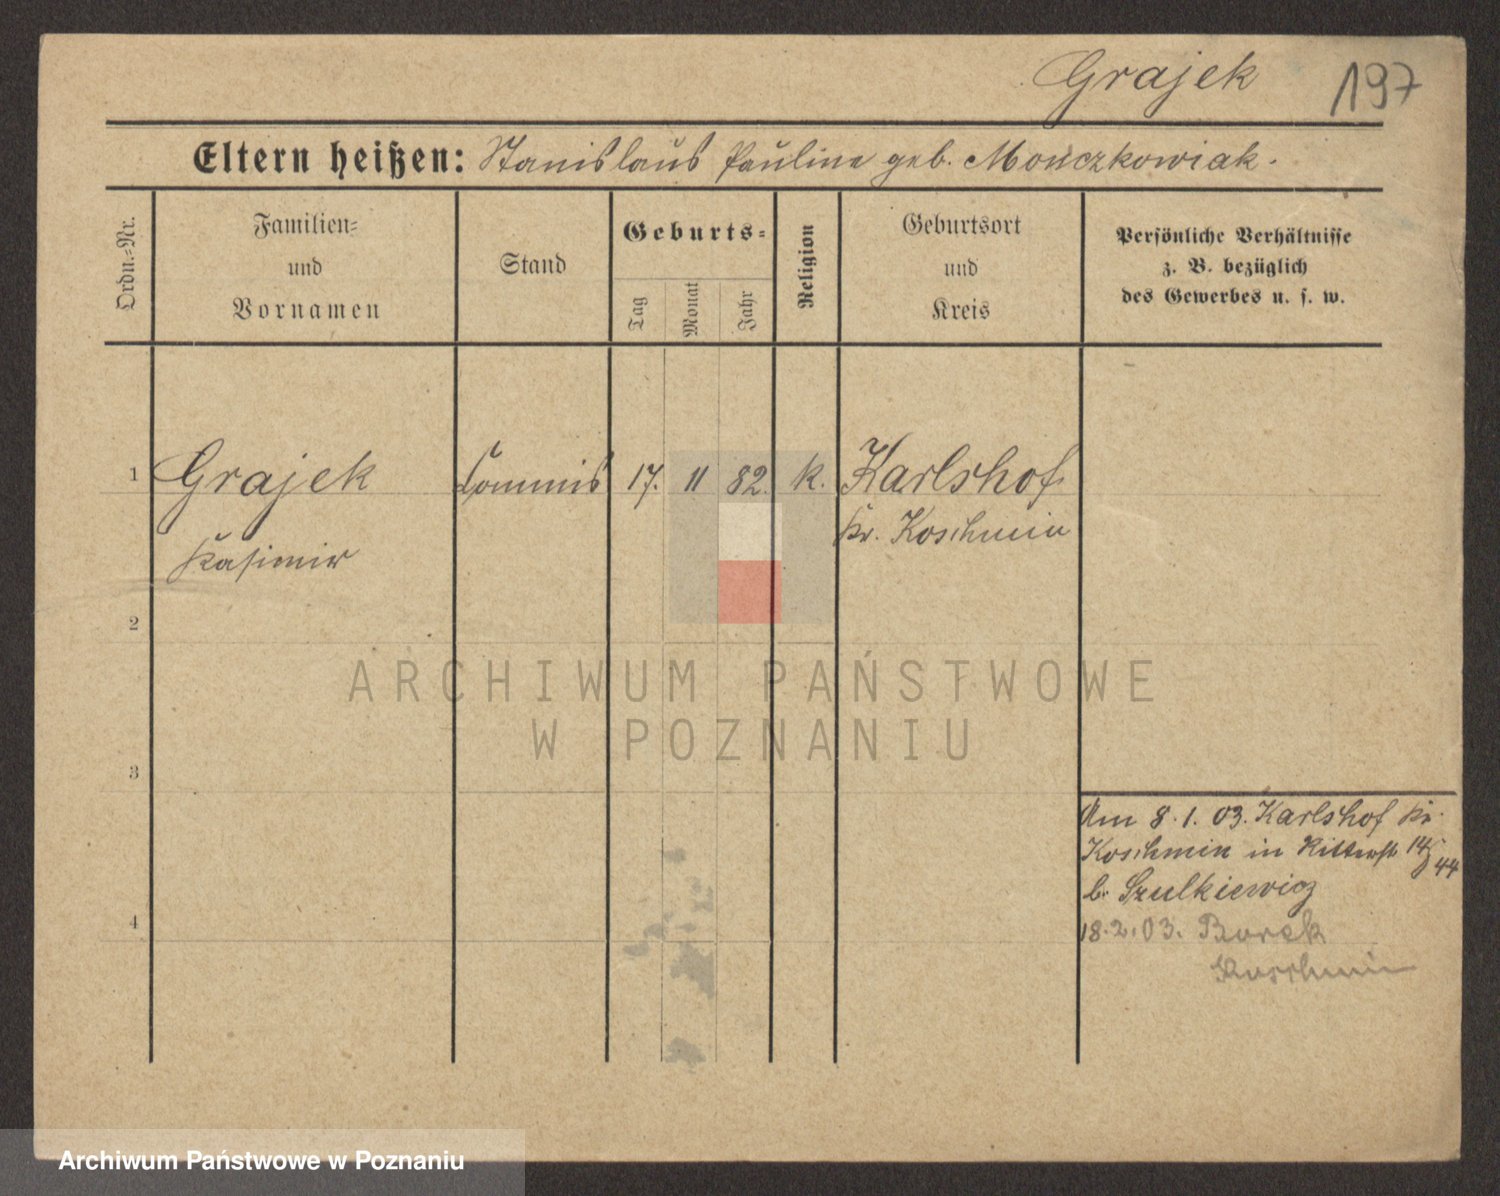 Grajek 197
Eltern heißen: Stanislaus Pauline geb. Mouczkowiak.
Ordn.-Nr.
Familien-
und
Vornamen
Stand
Geburts-
Tag
Monat
Jahr
Religion
Geburtsort
und
Kreis
Persönliche Verhältnisse
z. B. bezüglich
des Gewerbes u. s. w.
1 Grajek Commis 17. 11 82. k. Karlshof
Kr. Koschmin
Kasimir
2
3
4
Am 8.1.03. Karlshof Kr.
Koschmin in Ritterstr 14/44
b. Szulkiewicz
18.2.03. Borek
Koschmin
ARCHIWUM PAŃSTWOWE
W POZNANIU
Archiwum Państwowe w Poznaniu